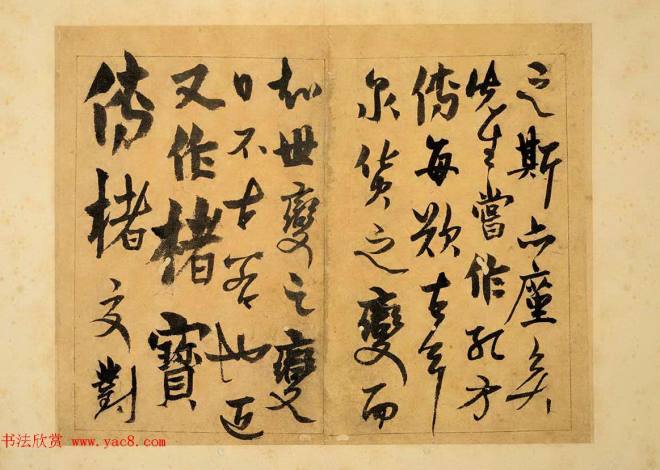 之斯亦座矣
先生嘗作孔方
傳每歎古今
泉貨之變而
知世變之變
日不古若也近
又作楮寶
傳楮對
书法欣赏 www.yac8.com